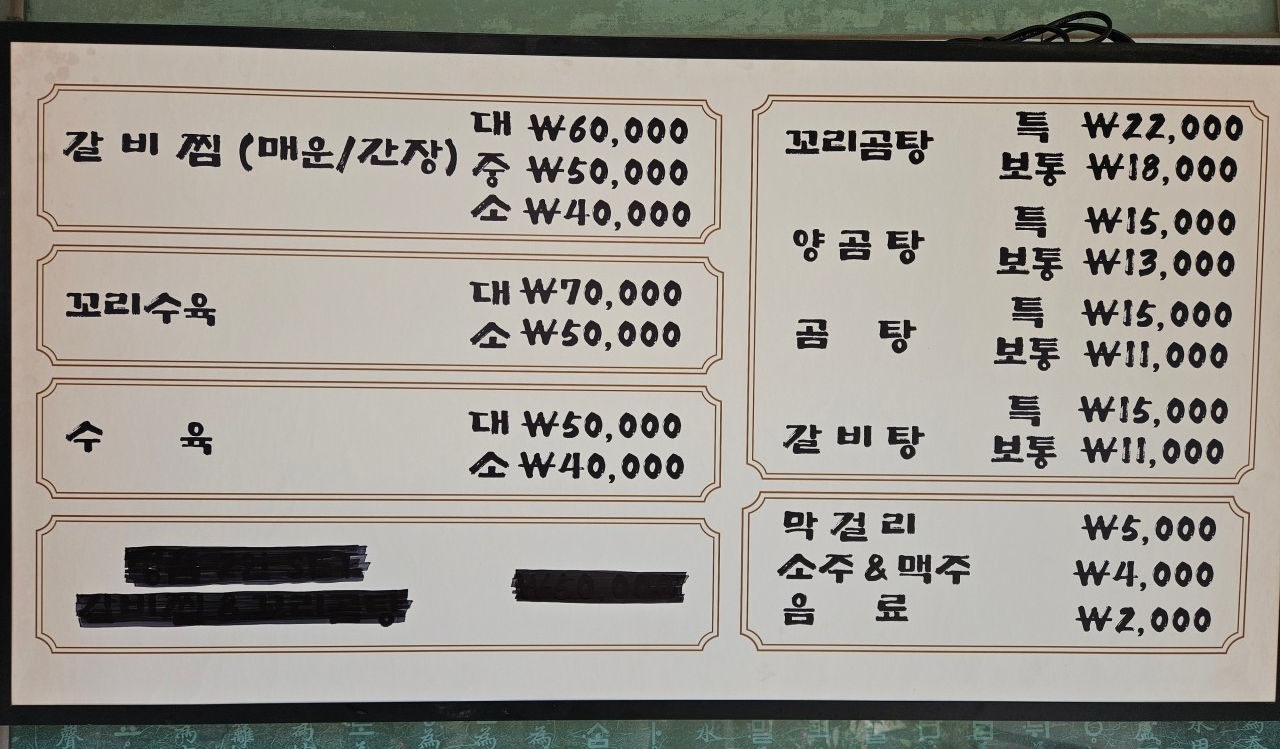 갈비찜 (매운/간장) 대 ₩60,000
중 ₩50,000
소 ₩40,000
꼬리수육 대 ₩70,000
소 ₩50,000
수육 대 ₩50,000
소 ₩40,000
꼬리곰탕 특 ₩22,000
보통 ₩18,000
양곰탕 특 ₩15,000
보통 ₩13,000
곰탕 특 ₩15,000
보통 ₩11,000
갈비탕 특 ₩15,000
보통 ₩11,000
막걸리 ₩5,000
소주&맥주 ₩4,000
음료 ₩2,000